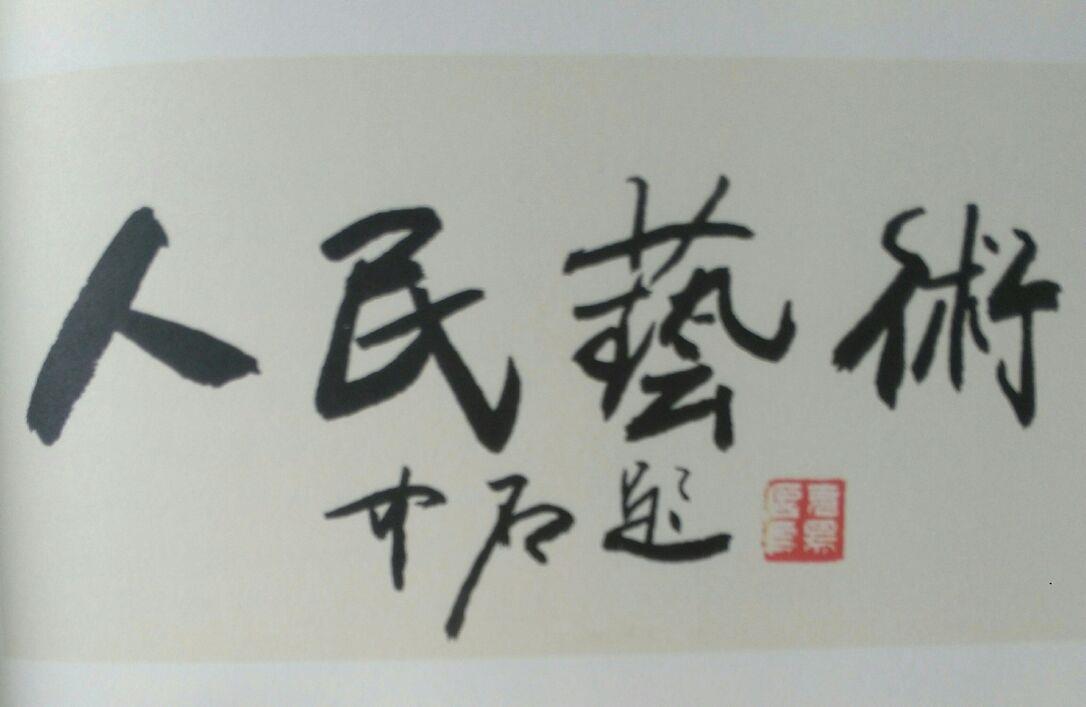 人民藝術
中石題